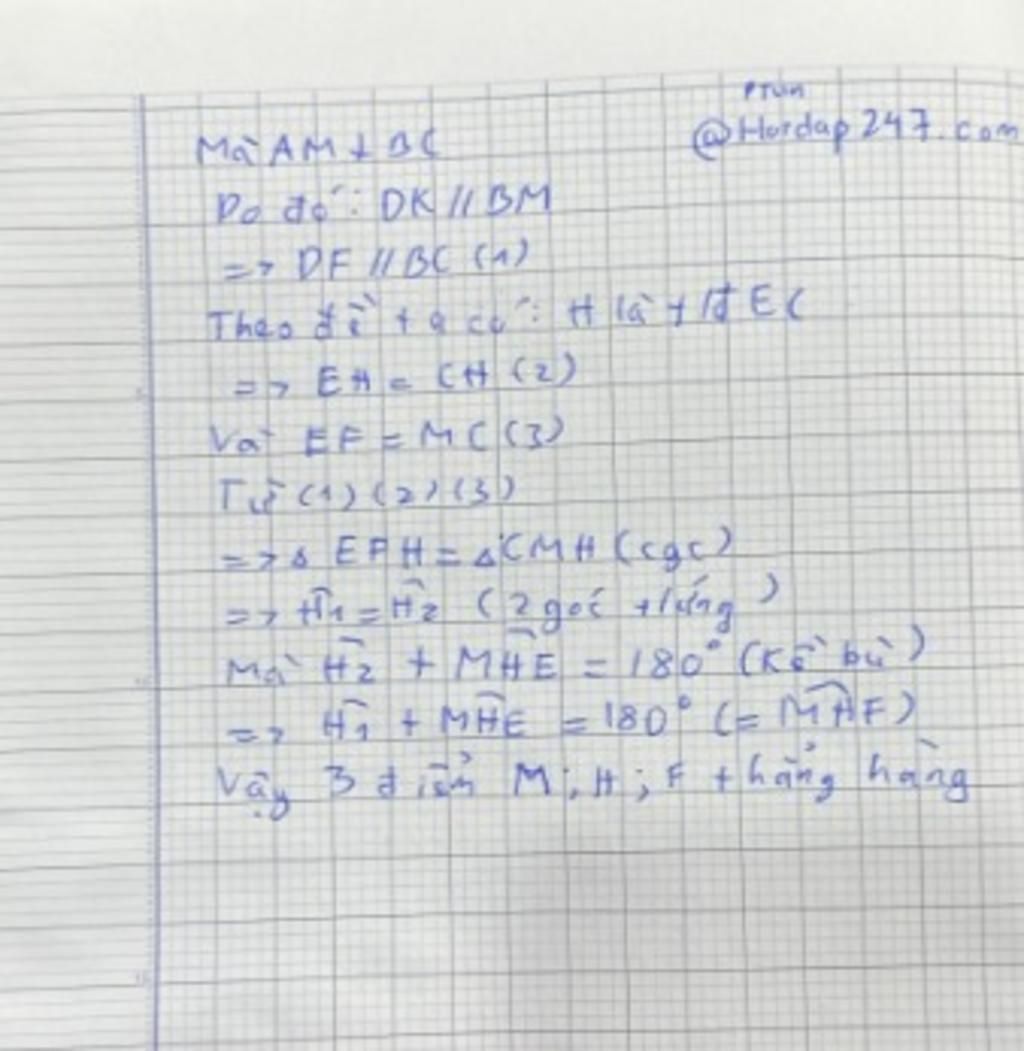 PTun
@Hoidap247.com
Mà AM ⊥ BC
Do đó: DK // BM
=> DF // BC (1)
Theo đề ta có: H là tđ EC
=> EH = CH (2)
Và EF = MC (3)
Từ (1) (2) (3)
=> Δ EFH = Δ CMH (cgc)
=> Ĥ1 = Ĥ2 (2 góc tứng)
Mà Ĥ2 + MĤE = 180° (Kề bù)
=> Ĥ1 + MĤE = 180° (= MĤF)
Vậy 3 điểm M; H; F thẳng hàng